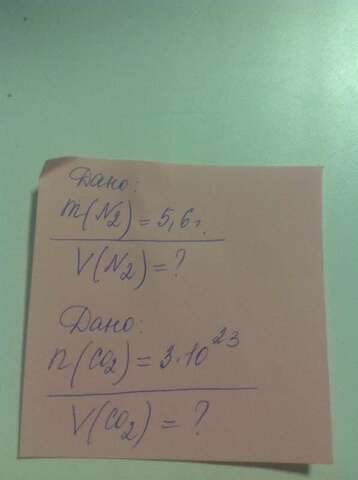 Дано:
m(N₂) = 5,6г.
V(N₂) = ?
Дано:
n(CO₂) = 3·10²³
V(CO₂) = ?